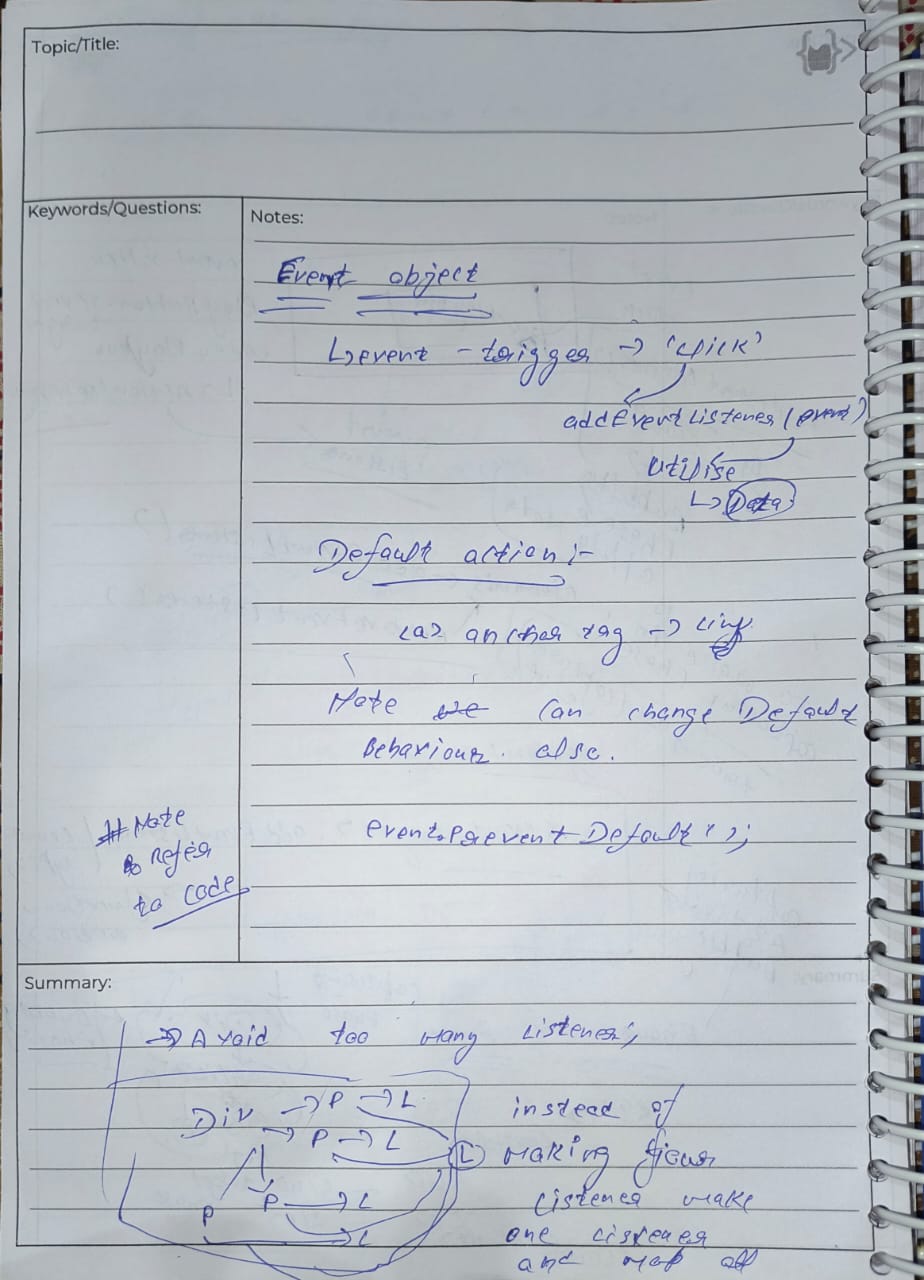 Topic/Title:
Keywords/Questions:
Notes:
Event object
↳ event - trigger → 'click'
addEventListener (event)
utilise
↳ Data
Default action :-
<a> anchor tag →
Note we can change Default
Behaviour also.
event.preventDefault();
# Note
Refer
to code
Summary:
→ Avoid too many Listener;
Div → P → L
→ P → L
L
P P → L
L
instead of
making four
listener make
one listener
and map all